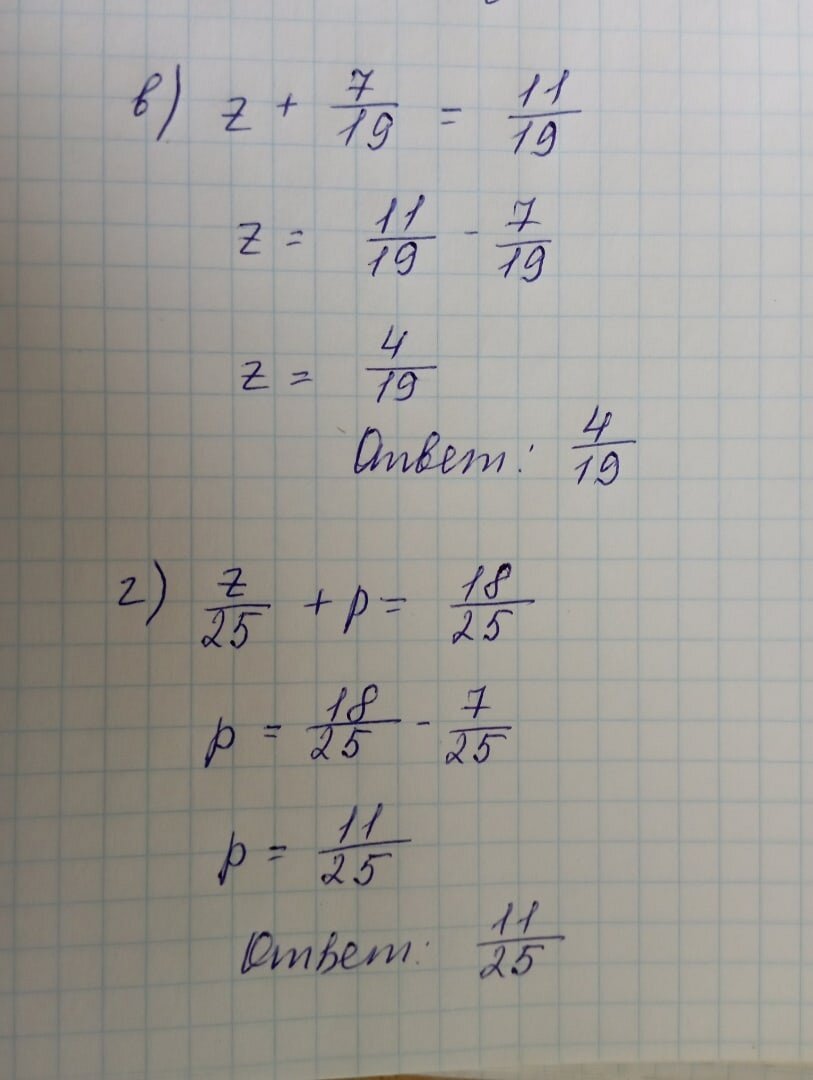 в) z + 7/19 = 11/19
z = 11/19 - 7/19
z = 4/19
Ответ: 4/19
г) z/25 + p = 18/25
p = 18/25 - 7/25
p = 11/25
Ответ: 11/25